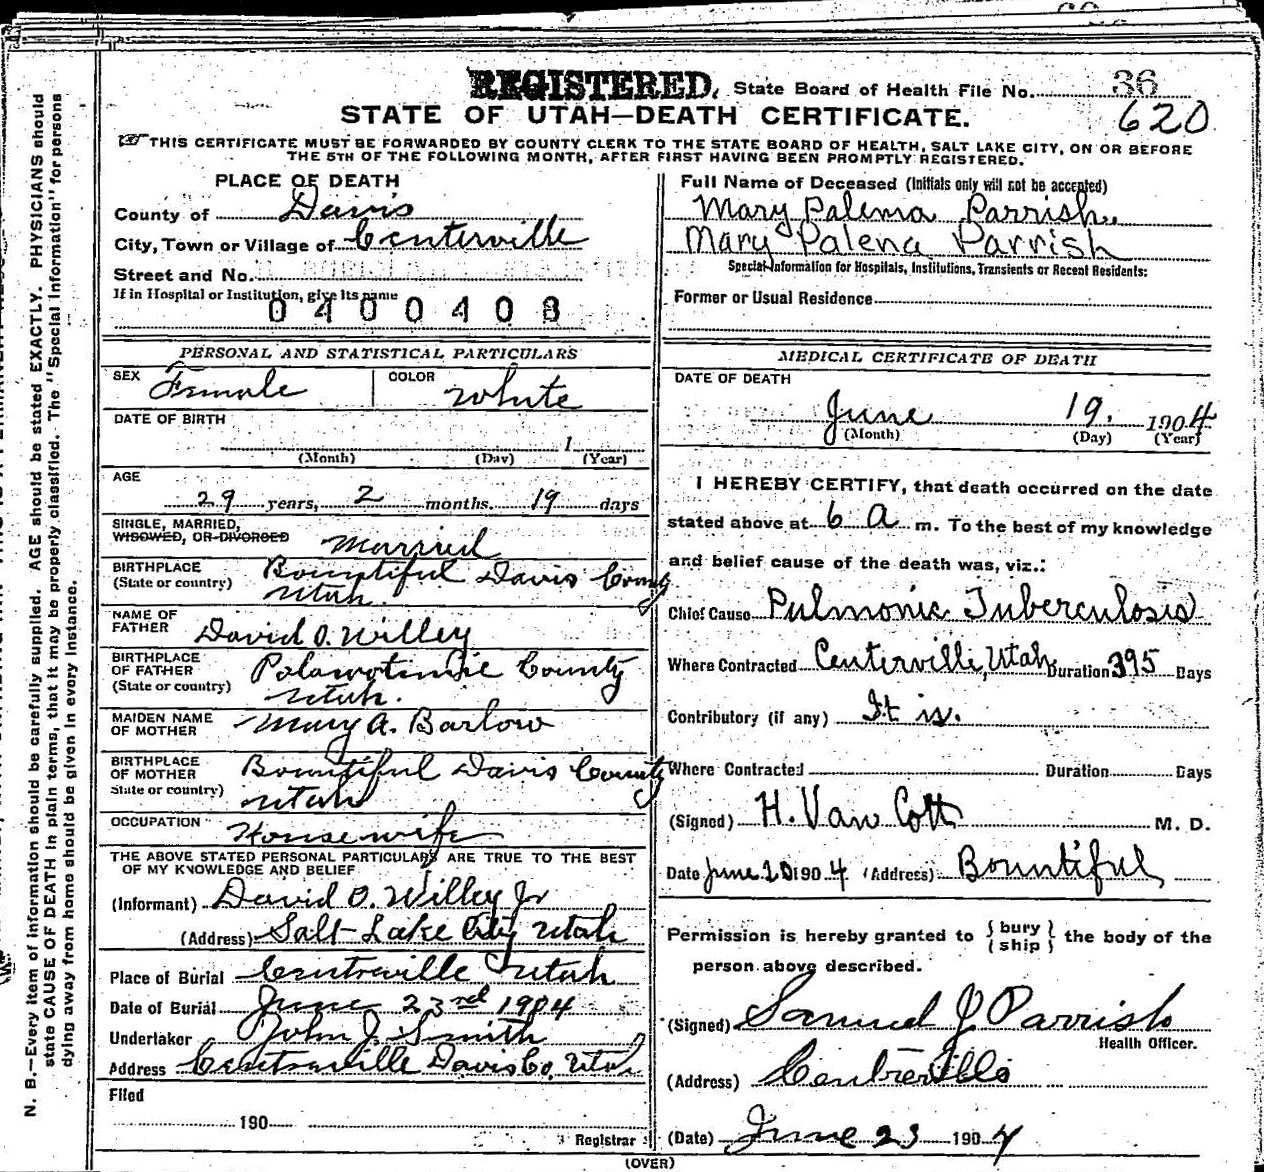 REGISTERED. State Board of Health File No. 36
620
STATE OF UTAH—DEATH CERTIFICATE.
THIS CERTIFICATE MUST BE FORWARDED BY COUNTY CLERK TO THE STATE BOARD OF HEALTH, SALT LAKE CITY, ON OR BEFORE
THE 5TH OF THE FOLLOWING MONTH, AFTER FIRST HAVING BEEN PROMPTLY REGISTERED.
PLACE OF DEATH
County of Davis
City, Town or Village of Centerville
Street and No.
If in Hospital or Institution, give its name
0400408
Full Name of Deceased (Initials only will not be accepted)
Mary Palema Parrish.
Mary Palena Parrish
Special Information for Hospitals, Institutions, Transients or Recent Residents:
Former or Usual Residence
PERSONAL AND STATISTICAL PARTICULARS
SEX Female COLOR White
DATE OF BIRTH
1
(Month) (Day) (Year)
AGE
29 years, 2 months. 19 days
SINGLE, MARRIED,
WIDOWED, OR DIVORCED Married
BIRTHPLACE
(State or country) Bountiful Davis County
Utah.
NAME OF
FATHER David O. Willey
BIRTHPLACE
OF FATHER
(State or country) County
Utah.
MAIDEN NAME
OF MOTHER Mary A. Barlow
BIRTHPLACE
OF MOTHER
State or country) Bountiful Davis County
Utah
OCCUPATION Housewife
THE ABOVE STATED PERSONAL PARTICULARS ARE TRUE TO THE BEST
OF MY KNOWLEDGE AND BELIEF
(Informant) David O. Willey Jr
(Address) Salt Lake City Utah
Place of Burial Centreville Utah
Date of Burial June 23rd 1904
Undertaker John J. Smith
Address Centerville Davis Co, Utah
Filed
190
Registrar
MEDICAL CERTIFICATE OF DEATH
DATE OF DEATH
June 19. 1904
(Month) (Day) (Year)
I HEREBY CERTIFY, that death occurred on the date
stated above at 6 a m. To the best of my knowledge
and belief cause of the death was, viz.:
Chief Cause Pulmonic Tuberculosis
Where Contracted Centerville, Utah Duration 395 Days
Contributory (if any) It is.
Where Contracted Duration Days
(Signed) H. Van Cott M. D.
Date June 20 1904 (Address) Bountiful
Permission is hereby granted to {bury
{ship} the body of the
person above described.
(Signed) Samuel J Parrish
Health Officer.
(Address) Centreville
(Date) June 23 1904
(OVER)
N. B.—Every item of information should be carefully supplied. AGE should be stated EXACTLY. PHYSICIANS should
state CAUSE OF DEATH in plain terms, that it may be properly classified. The "Special Information" for persons
dying away from home should be given in every instance.